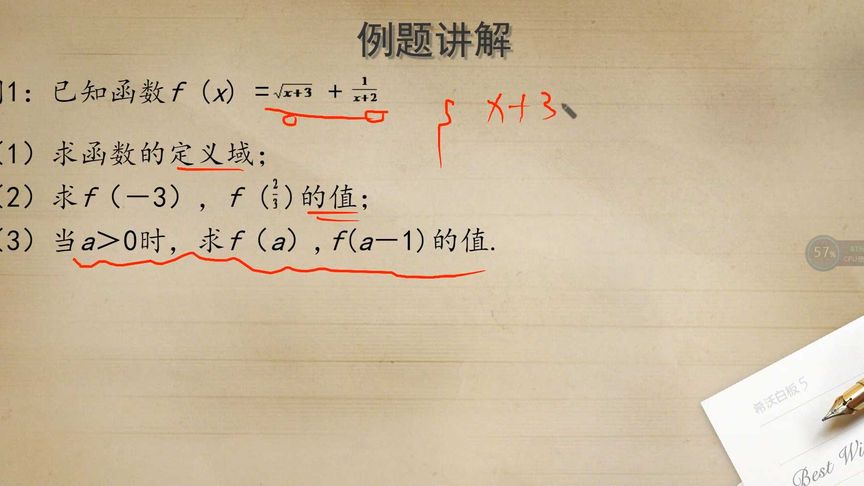 例题讲解
1：已知函数f（x）=√x+3 + 1/x+2
{ x+3
（1）求函数的定义域；
（2）求f（-3），f（2/3)的值；
（3）当a＞0时，求f（a）,f(a-1)的值.
57%
希沃白板5
Best Wi